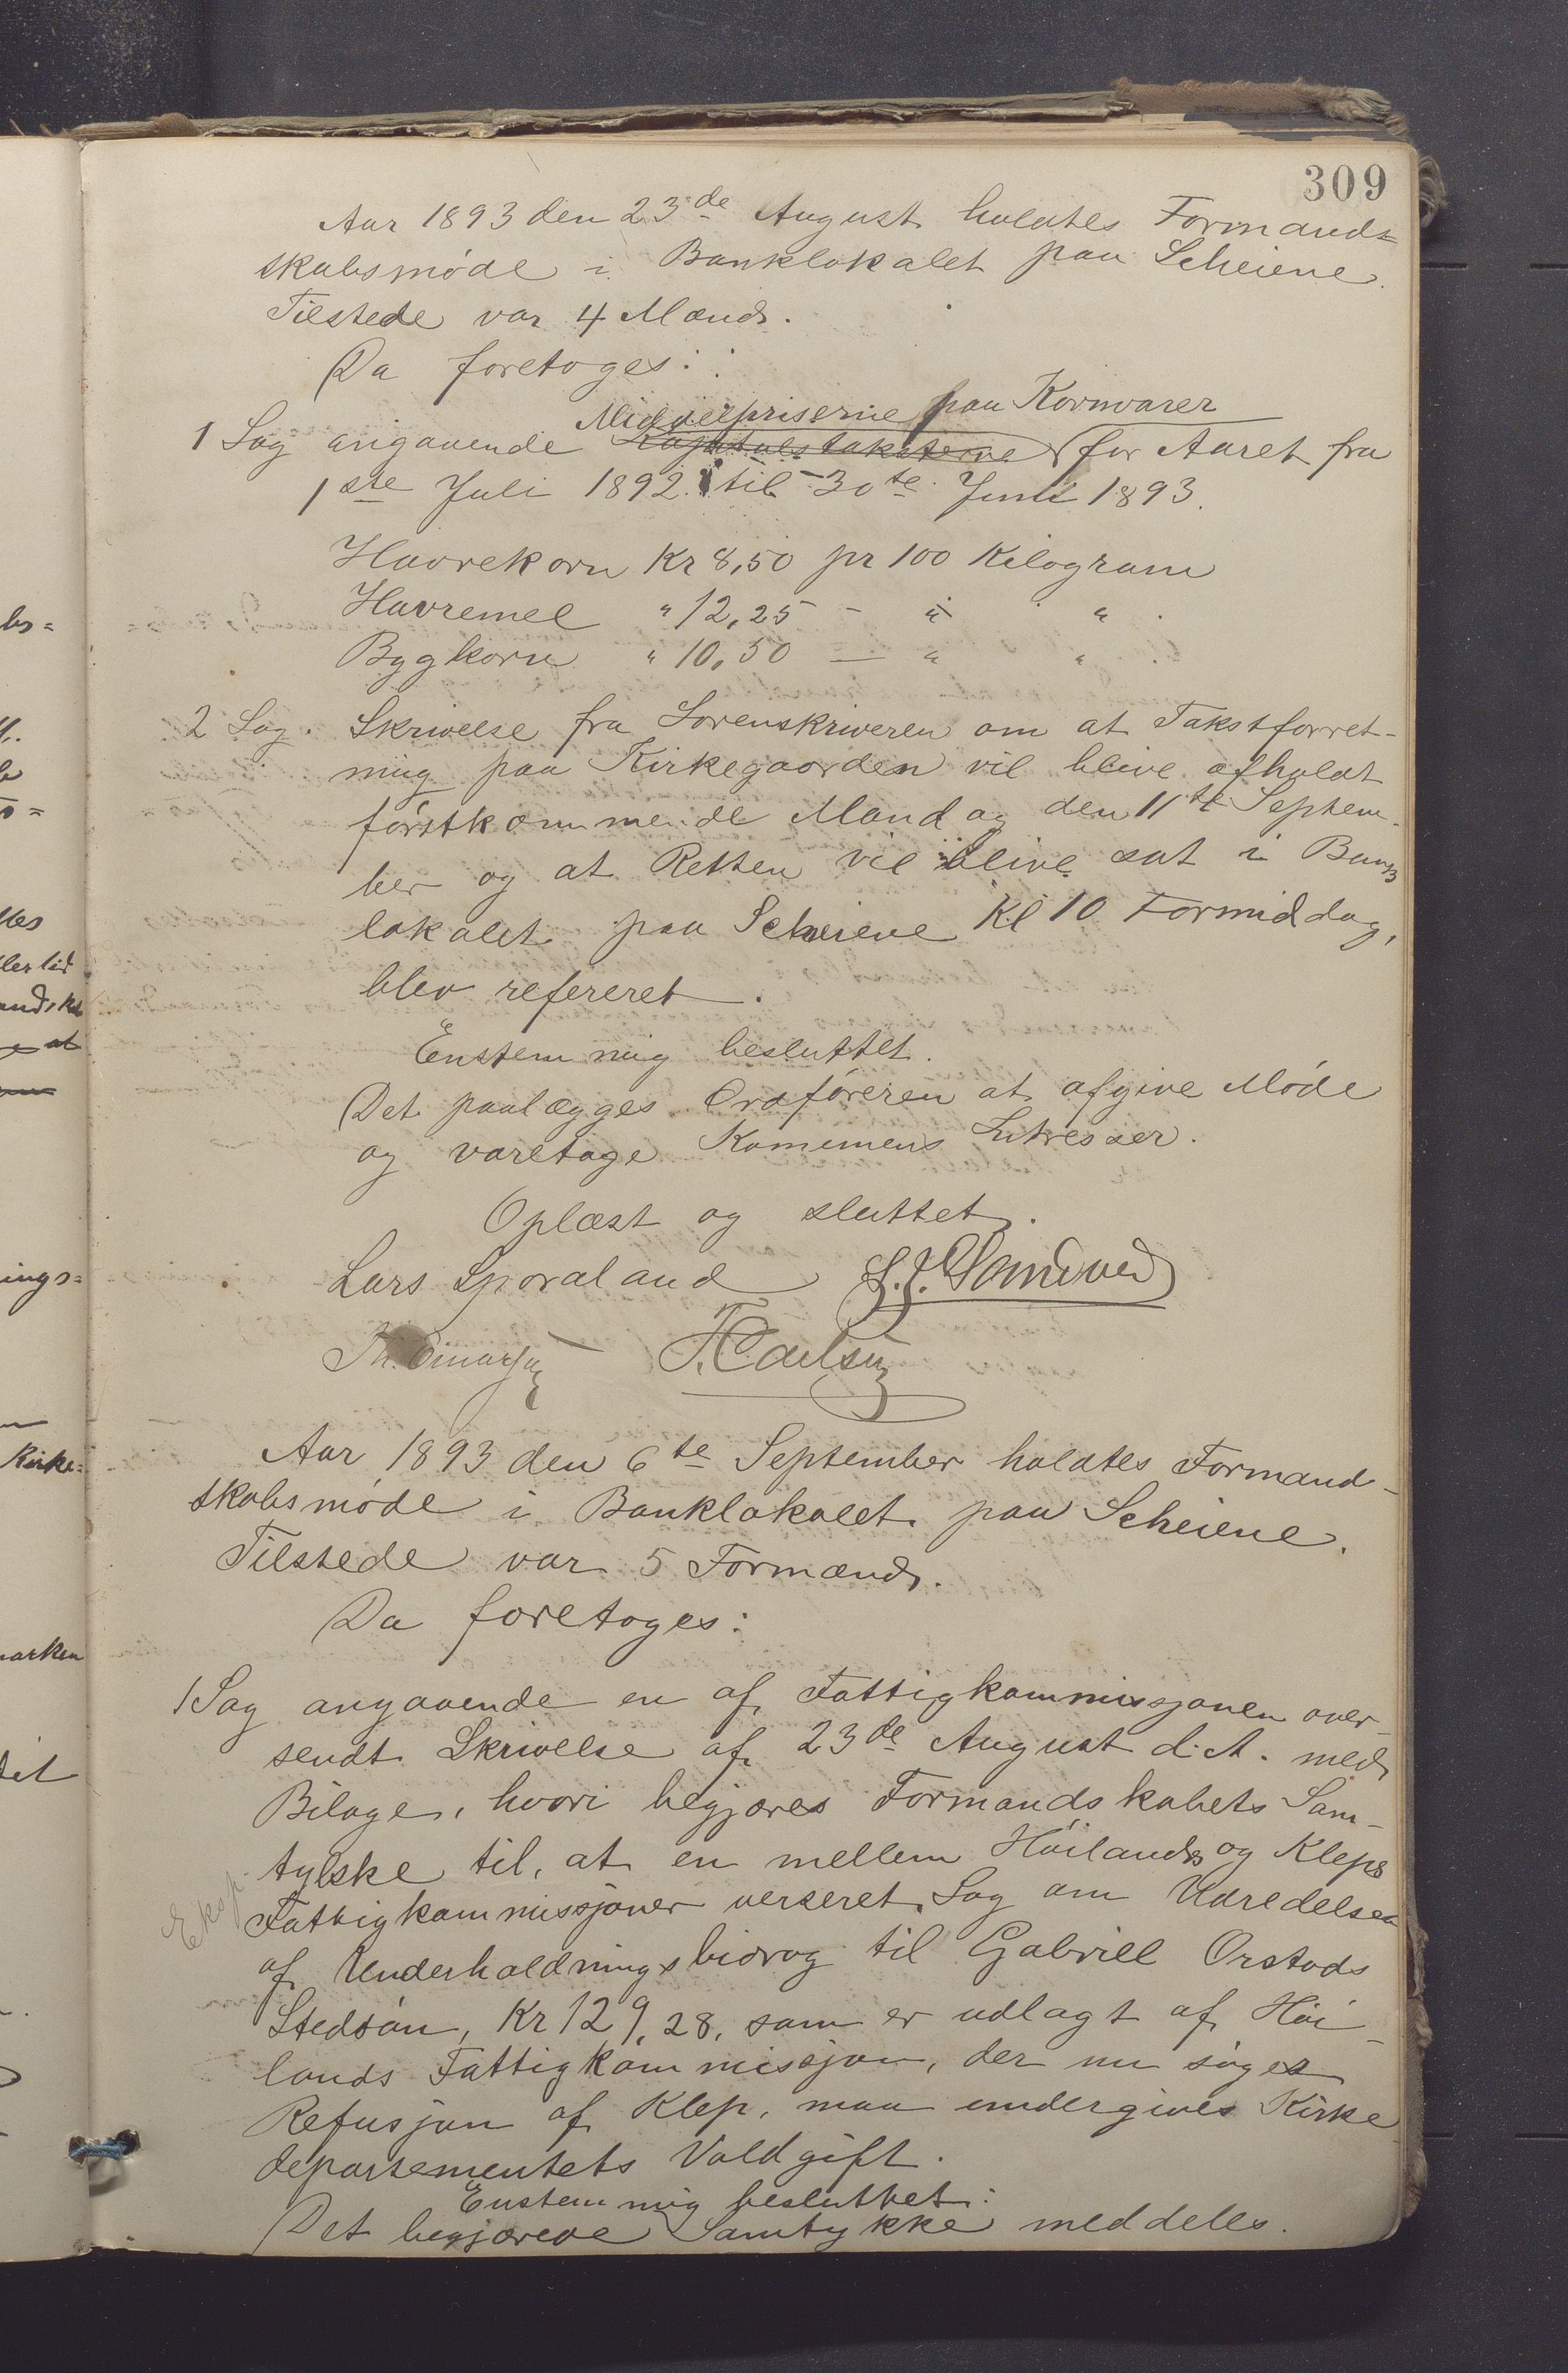 309
Aar 1893 den 23de August holdtes Formands=
skabsmøde i Banklokalet paa Scheiene.
Tilstede var 4 Mænd.
Da foretoges:
Middelpriserne paa Kornvarer
1 Sag angaaende Kapitelstaksterne for Aaret fra
1ste Juli 1892 til 30te Juni 1893.
Havrekorn Kr 8,50 pr 100 Kilogram
Havremel " 12,25 - " "
Bygkorn " 10,50 — " "
2 Sag. Skrivelse fra Sorenskriveren om at Takstforret-
ning paa Kirkegaarden vil blive afholdt
førstkommende Mandag den 11te Septem-
ber og at Retten vil blive sat i Bank
lokalet paa Scheiene Kl 10 Formiddag,
blev refereret.
Enstemmig besluttet.
Det paalægges Ordføreren at afgive Møde
og varetage Komunens Intresser.
Oplæst og sluttet.
Lars Sporaland
Aar 1893 den 6te September holdtes Formand-
skabsmøde i Banklokalet paa Scheiene.
Tilstede var 5 Formænd.
Da foretoges:
1 Sag angaaende en af Fattigkommissjonen over-
sendt Skrivelse af 23de August d. A. med
Bilage, hvori begjæres Formandskabets Sam-
tykke til, at en mellem Høilands og Kleps
Eksp.
Fattigkommissjoner verseret Sag om Udredelsen
af Underholdningsbidrag til Gabriel Orstads
Stedsøn, Kr 129,28, som er udlagt af Høi-
lands Fattigkommissjon, der nu søges
Refusjon af Klep, maa undergives Kirke
departementets Voldgift.
Enstemmig besluttet:
Det begjærede Samtykke meddeles.